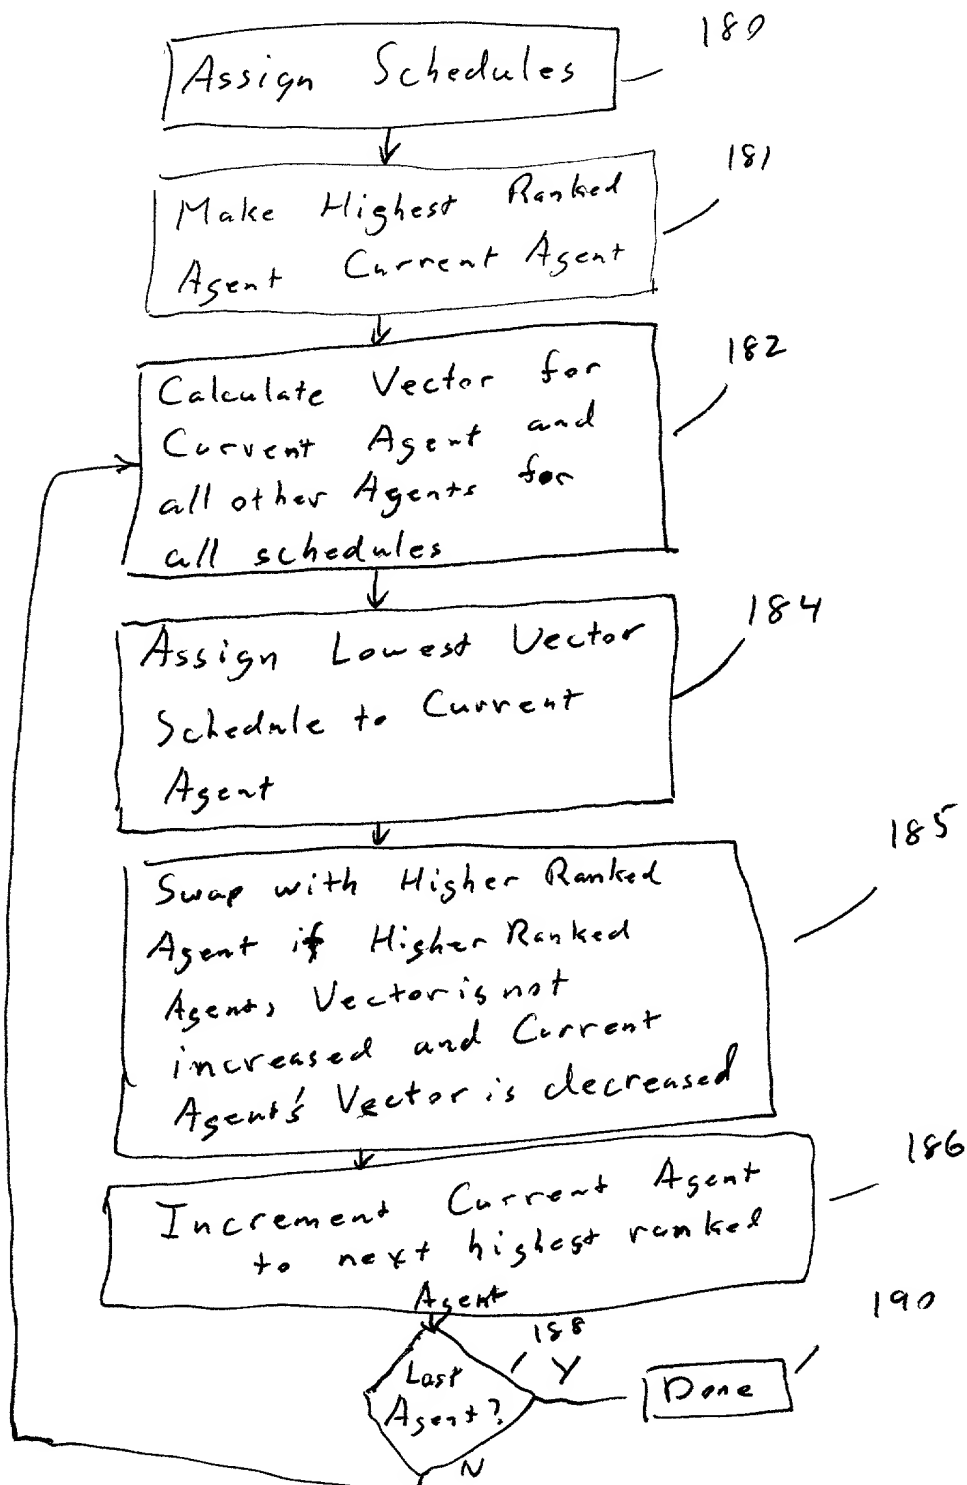 180
Assign Schedules
181
Make Highest Ranked
Agent Current Agent
182
Calculate Vector for
Current Agent and
all other Agents for
all schedules
184
Assign Lowest Vector
Schedule to Current
Agent
185
Swap with Higher Ranked
Agent if Higher Ranked
Agents Vector is not
increased and Current
Agent's Vector is decreased
186
Increment Current Agent
to next highest ranked
Agent
190
188
Y
Last
Agent?
Done
N